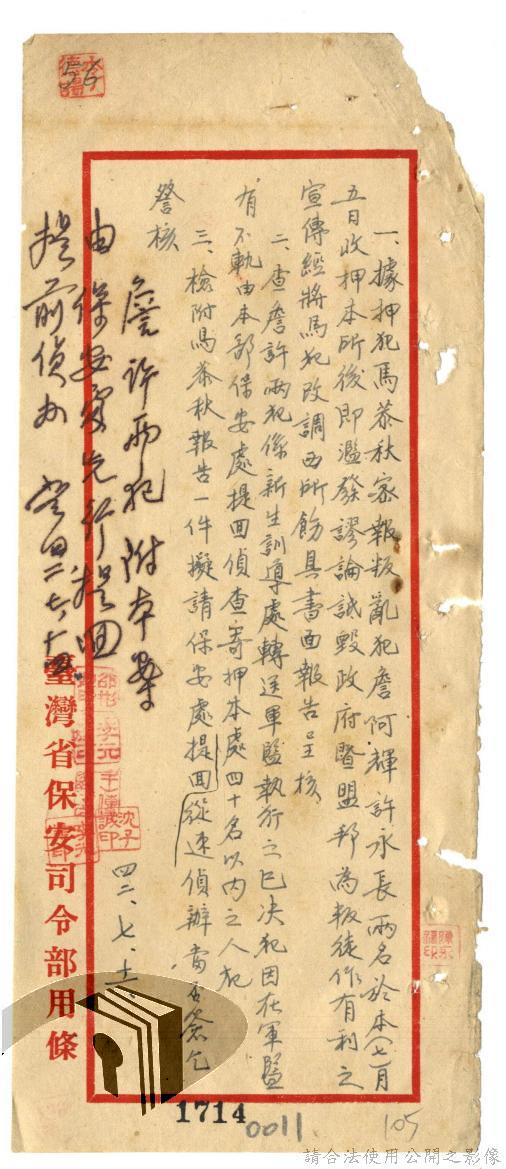 一、據押犯馬恭秋密報叛亂犯詹阿輝許永長兩名於本(七)月
五日收押本所後即濫發謬論詆毀政府暨盟邦為叛徒作有利之
宣傳經將馬犯改調西所飭具書面報告呈核
二、查詹許兩犯係新生訓導處轉送軍監執行之已決犯因在軍監
有不軌由本部保安處提回偵查寄押本處四十名以內之人犯
三、檢附馬恭秋報告一件擬請保安處提回從速偵辦當否簽乞
詧核
詹許兩犯附本案
由保安處先行提回
提前偵办
四二、七、十
四二、七、十一
臺灣省保安司令部用條
1714
0011
105
56
請合法使用公開之影像